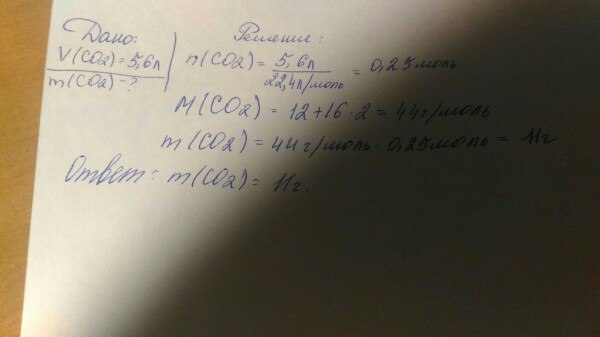 Дано:
V(CO2)=5,6л
m(CO2)=?
Решение:
n(CO2)= 5,6л / 22,4л/моль = 0,25моль
M(CO2) = 12+16·2 = 44г/моль
m(CO2) = 44г/моль · 0,25моль = 11г
Ответ: m(CO2) = 11г.